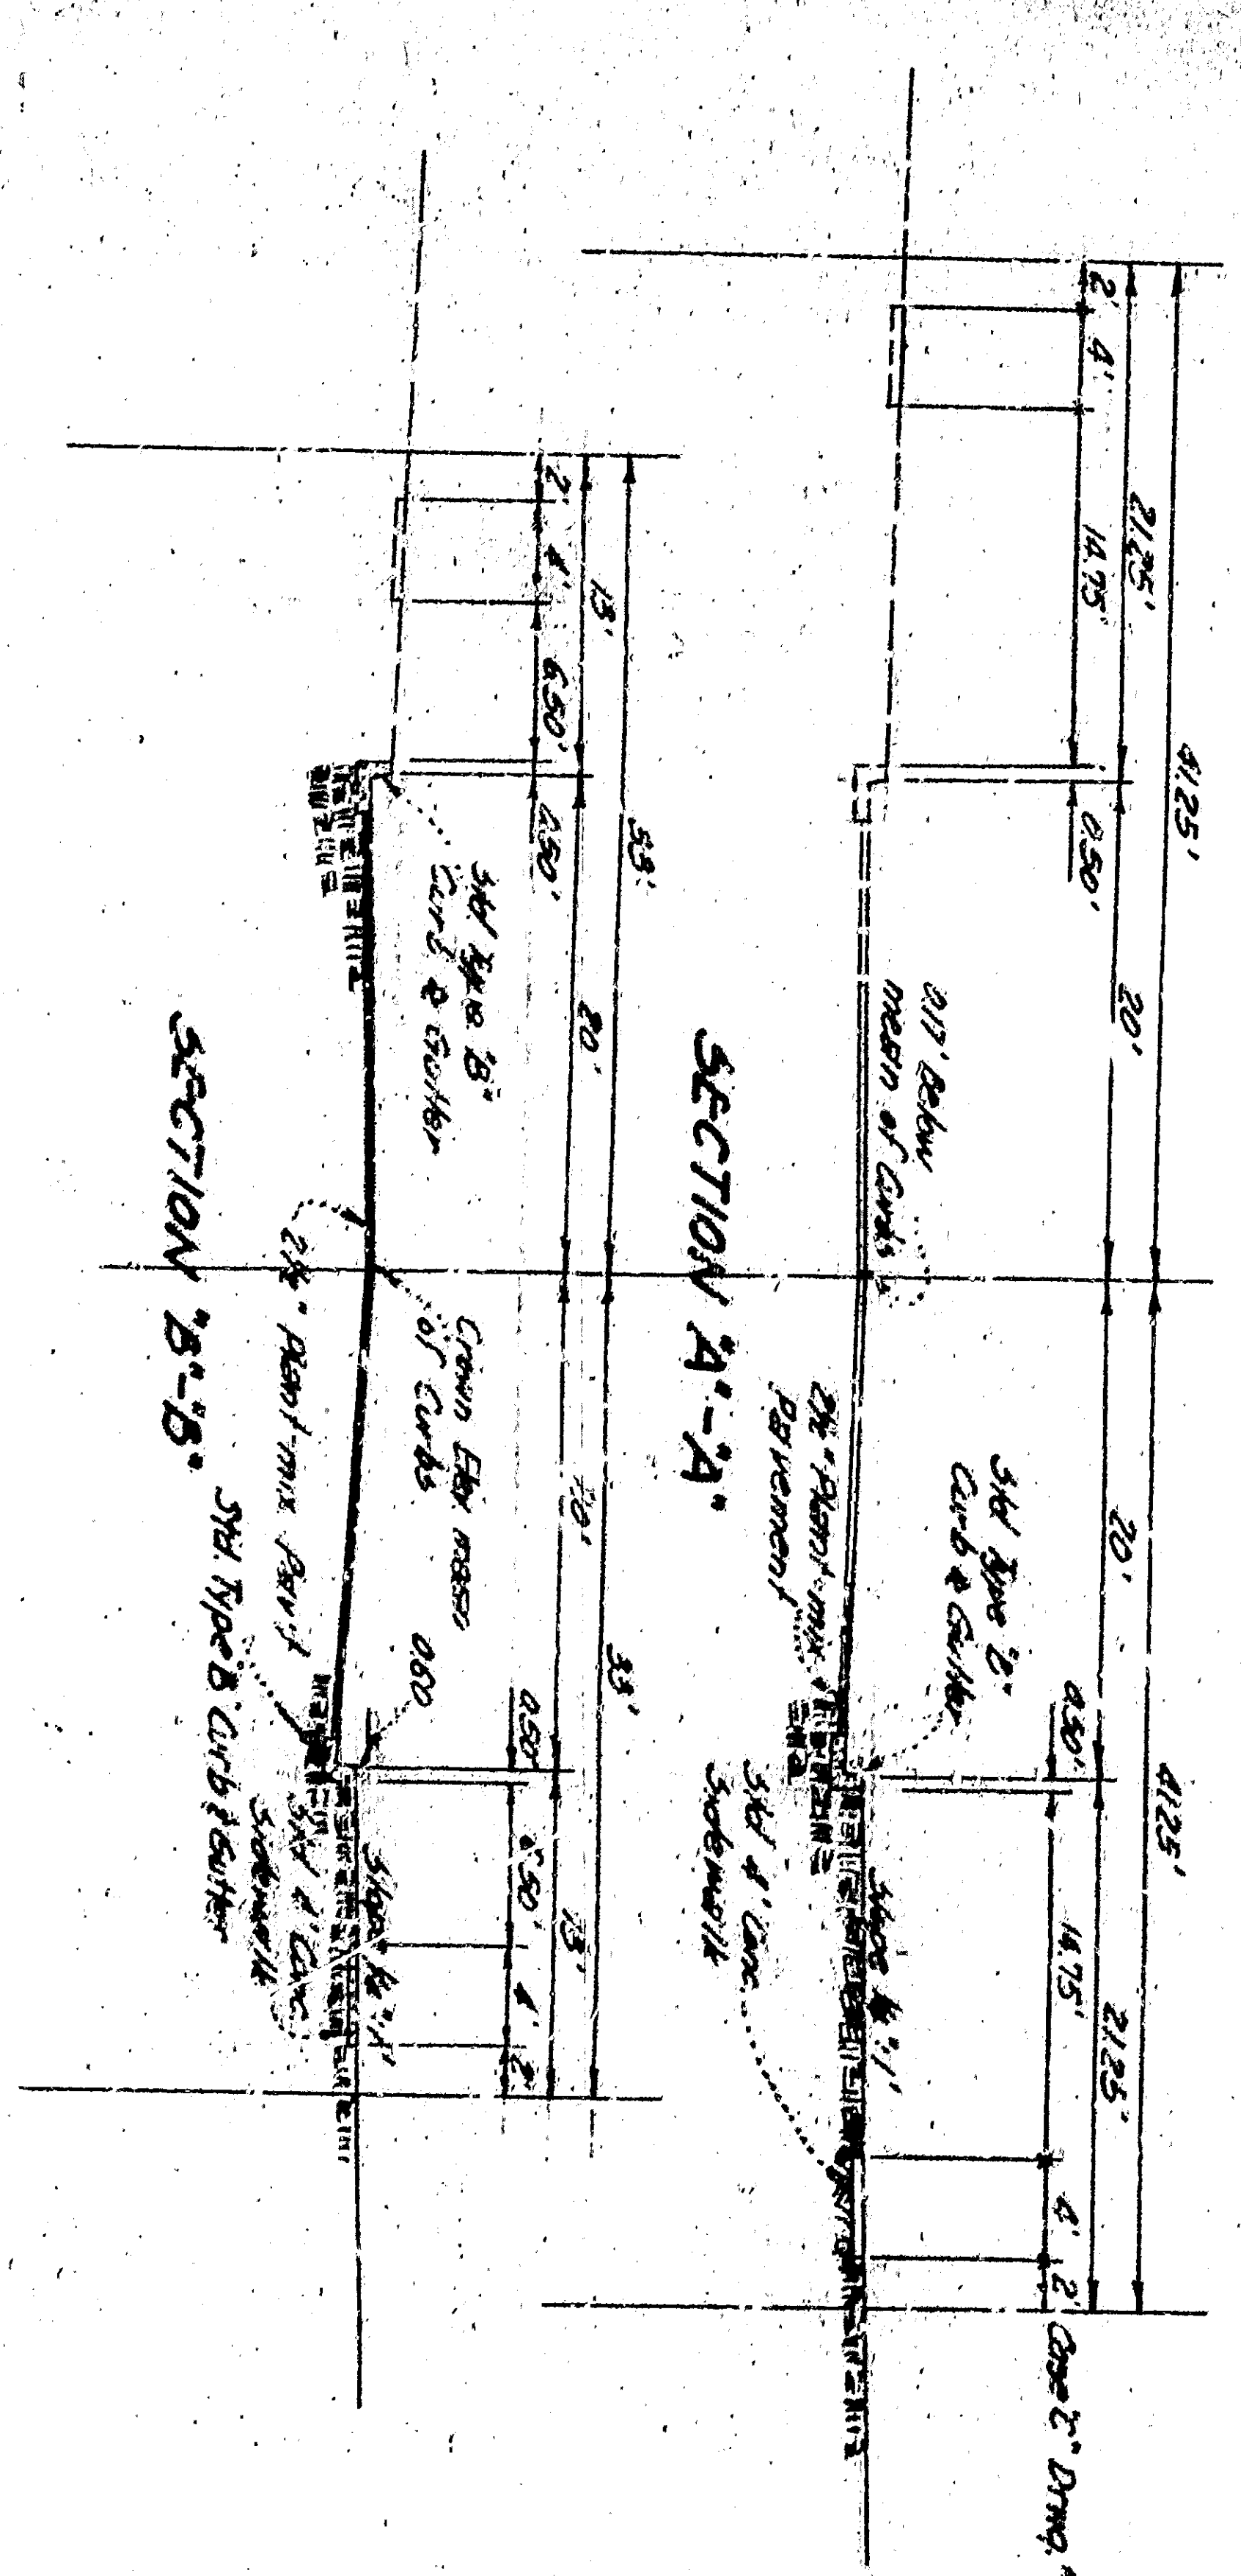 41.25' 41.25'
21.25' 20' 20' 21.25'
2' 4' 14.75' 0.50' 0.50' 14.75' 4' 2'
Case "C" Drwg.
0.17' Below
mean of Curbs
Std Type
Curb & Gutter
Slope 1'
2½" Plant-mix
Pavement
Std 4' Conc.
Sidewalk
SECTION "A"-"A"
33' 33'
13' 20' 20' 13'
2' 4' 6.50' 0.50' 0.50' 6.50' 4' 2'
Std Type "B"
Curb & Gutter
Crown Elev mean
of Curbs
Slope 1'
2½" Plant-mix Pav't
Std 4' Conc.
Sidewalk
Std. Type B Curb & Gutter
SECTION "B"-"B"